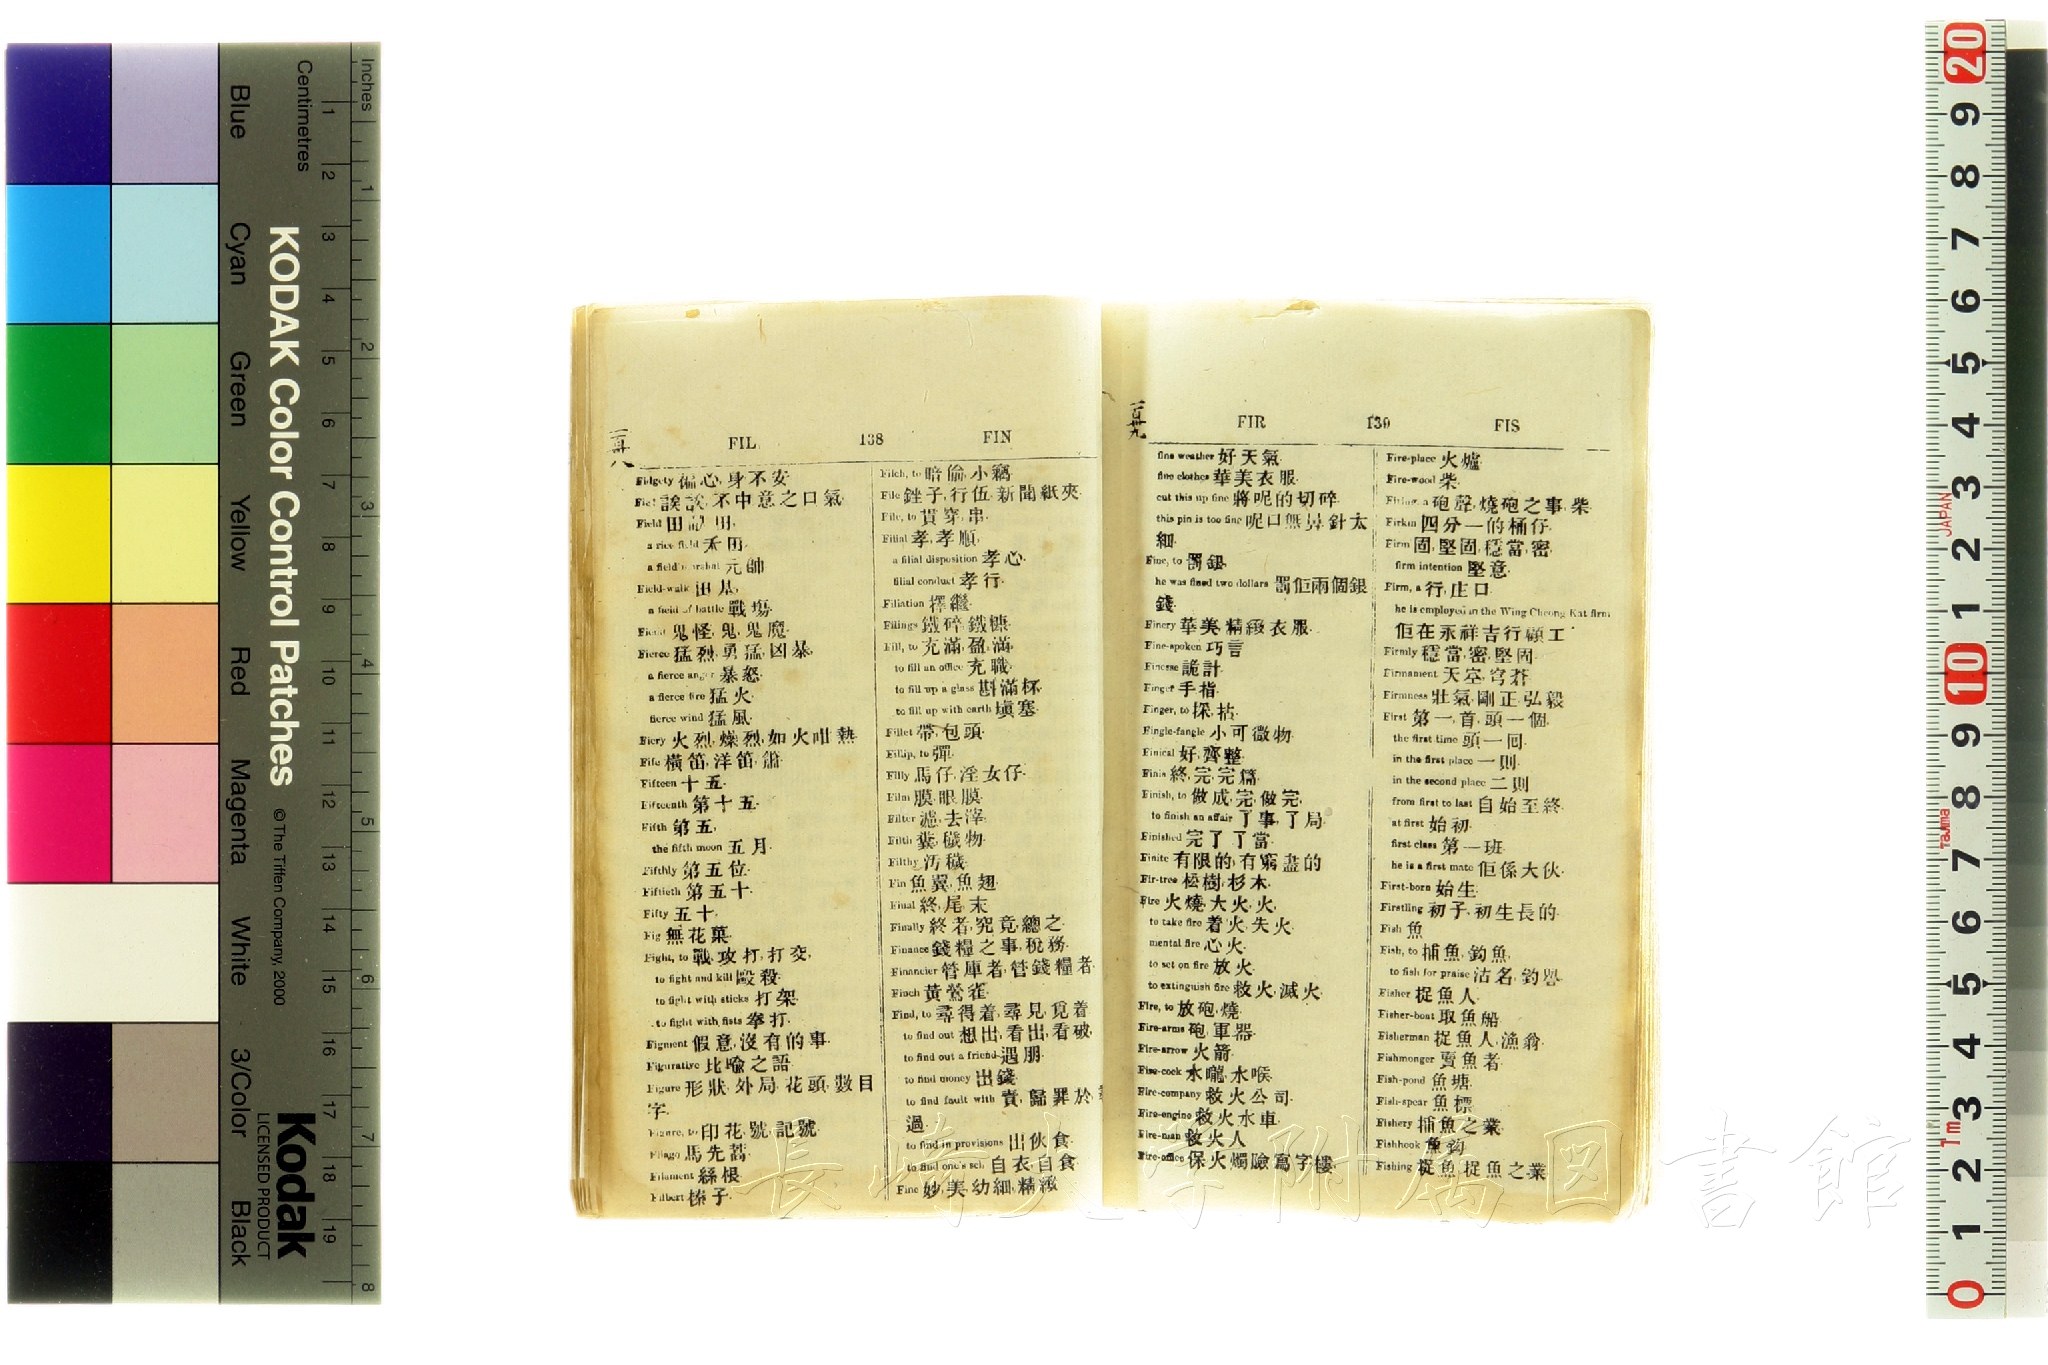 Blue
Cyan
Green
Yellow
Red
Magenta
White
3/Color
Black
KODAK Color Control Patches
© The Tiffen Company, 2000
Kodak
LICENSED PRODUCT
Centimetres
1 2 3 4 5 6 7 8 9 10 11 12 13 14 15 16 17 18 19
Inches
1 2 3 4 5 6 7 8
FIL 138 FIN
Fidgety 偏心,身不安
田
a rice field 禾田
元帥
Field-walk
a field of battle 戰塲
鬼怪,鬼,鬼魔
Fierce 猛烈,勇猛,凶暴
a fierce anger 暴怒
a fierce fire 猛火
fierce wind 猛風
Fiery 火烈,燥烈,如火咁熱
Fife 橫笛,洋笛,簫
Fifteen 十五
Fifteenth 第十五
Fifth 第五
the fifth moon 五月
Fifthly 第五位
Fiftieth 第五十
Fifty 五十
Fig 無花菓
Fight, to 戰,攻打,打交
to fight and kill 毆殺
to fight with sticks 打架
to fight with fists 拳打
Figment 假意,沒有的事
Figurative 比喻之語
Figure 形狀,外局,花頭,數目
字
Figure, to 印花,號,記號
馬先蒿
Filament 絲根
Filbert 榛子
Filch, to 暗偷,小竊
File 銼子,行伍,新聞紙夾
File, to 貫穿,串
Filial 孝,孝順
a filial disposition 孝心
filial conduct 孝行
Filiation 擇繼
Filings 鐵碎,鐵糠
Fill, to 充滿,盈滿
to fill an office 充職
to fill up a glass 斟滿杯
to fill up with earth 塡塞
Fillet 帶,包頭
Fillip, to 彈
Filly 馬仔,淫女仔
Film 膜,眼膜
Filter 濾,去滓
Filth 糞,穢物
Filthy 汚穢
Fin 魚翼,魚翅
Final 終,尾,末
Finally 終者,究竟,總之
Finance 錢糧之事,稅務
Financier 管庫者,管錢糧者
Finch 黃鶯雀
Find, to 尋得着,尋見,覓着
to find out 想出,看出,看破
to find out a friend 遇朋
to find money 出錢
to find fault with 責,歸罪於
過
to find in provisions 出伙食
to find one's self 自衣,自食
Fine 妙,美,幼細,精緻
FIR 139 FIS
fine weather 好天氣
fine clothes 華美衣服
cut this up fine 將呢的切碎
this pin is too fine 呢口無鼻針太
細
Fine, to 罰銀
he was fined two dollars 罰佢兩個銀
錢
Finery 華美,精緻衣服
Fine-spoken 巧言
Finesse 詭計
Finger 手指
Finger, to 探,拈
Fingle-fangle 小可微物
Finical 好,齊整
Finis 終,完,完篇
Finish, to 做成,完,做完
to finish an affair 了事,了局
Finished 完了,了當
Finite 有限的,有窮盡的
Fir-tree 松樹,杉木
Fire 火燒,大火,火
to take fire 着火,失火
mental fire 心火
to set on fire 放火
to extinguish fire 救火,滅火
Fire, to 放砲,燒
Fire-arms 砲,軍器
Fire-arrow 火箭
Fire-cock 水嚨,水喉
Fire-company 救火公司
Fire-engine 救火水車
Fire-man 救火人
Fire-office 保火燭險寫字樓
Fire-place 火爐
Fire-wood 柴
Firing, a 砲聲,燒砲之事,柴
Firkin 四分一的桶仔
Firm 固,堅固,穩當,密
firm intention 堅意
Firm, a 行,庄口
he is employed in the Wing Cheong Kat firm
佢在永祥吉行顧工
Firmly 穩當,密,堅固
Firmament 天空,穹蒼
Firmness 壯氣,剛正,弘毅
First 第一,首,頭一個
the first time 頭一囘
in the first place 一則
in the second place 二則
from first to last 自始至終
at first 始初
first class 第一班
he is a first mate 佢係大伙
First-born 始生
Firstling 初子,初生長的
Fish 魚
Fish, to 捕魚,鈎魚
to fish for praise 沽名,釣譽
Fisher 捉魚人
Fisher-boat 取魚船
Fisherman 捉魚人,漁翁
Fishmonger 賣魚者
Fish-pond 魚塘
Fish-spear 魚標
Fishery 捕魚之業
Fishhook 魚鈎
Fishing 捉魚,捉魚之業
長崎大学附属図書館
20 9 8 7 6 5 4 3 2 1 10 9 8 7 6 5 4 3 2 1 0
JAPAN
Tajima
1m